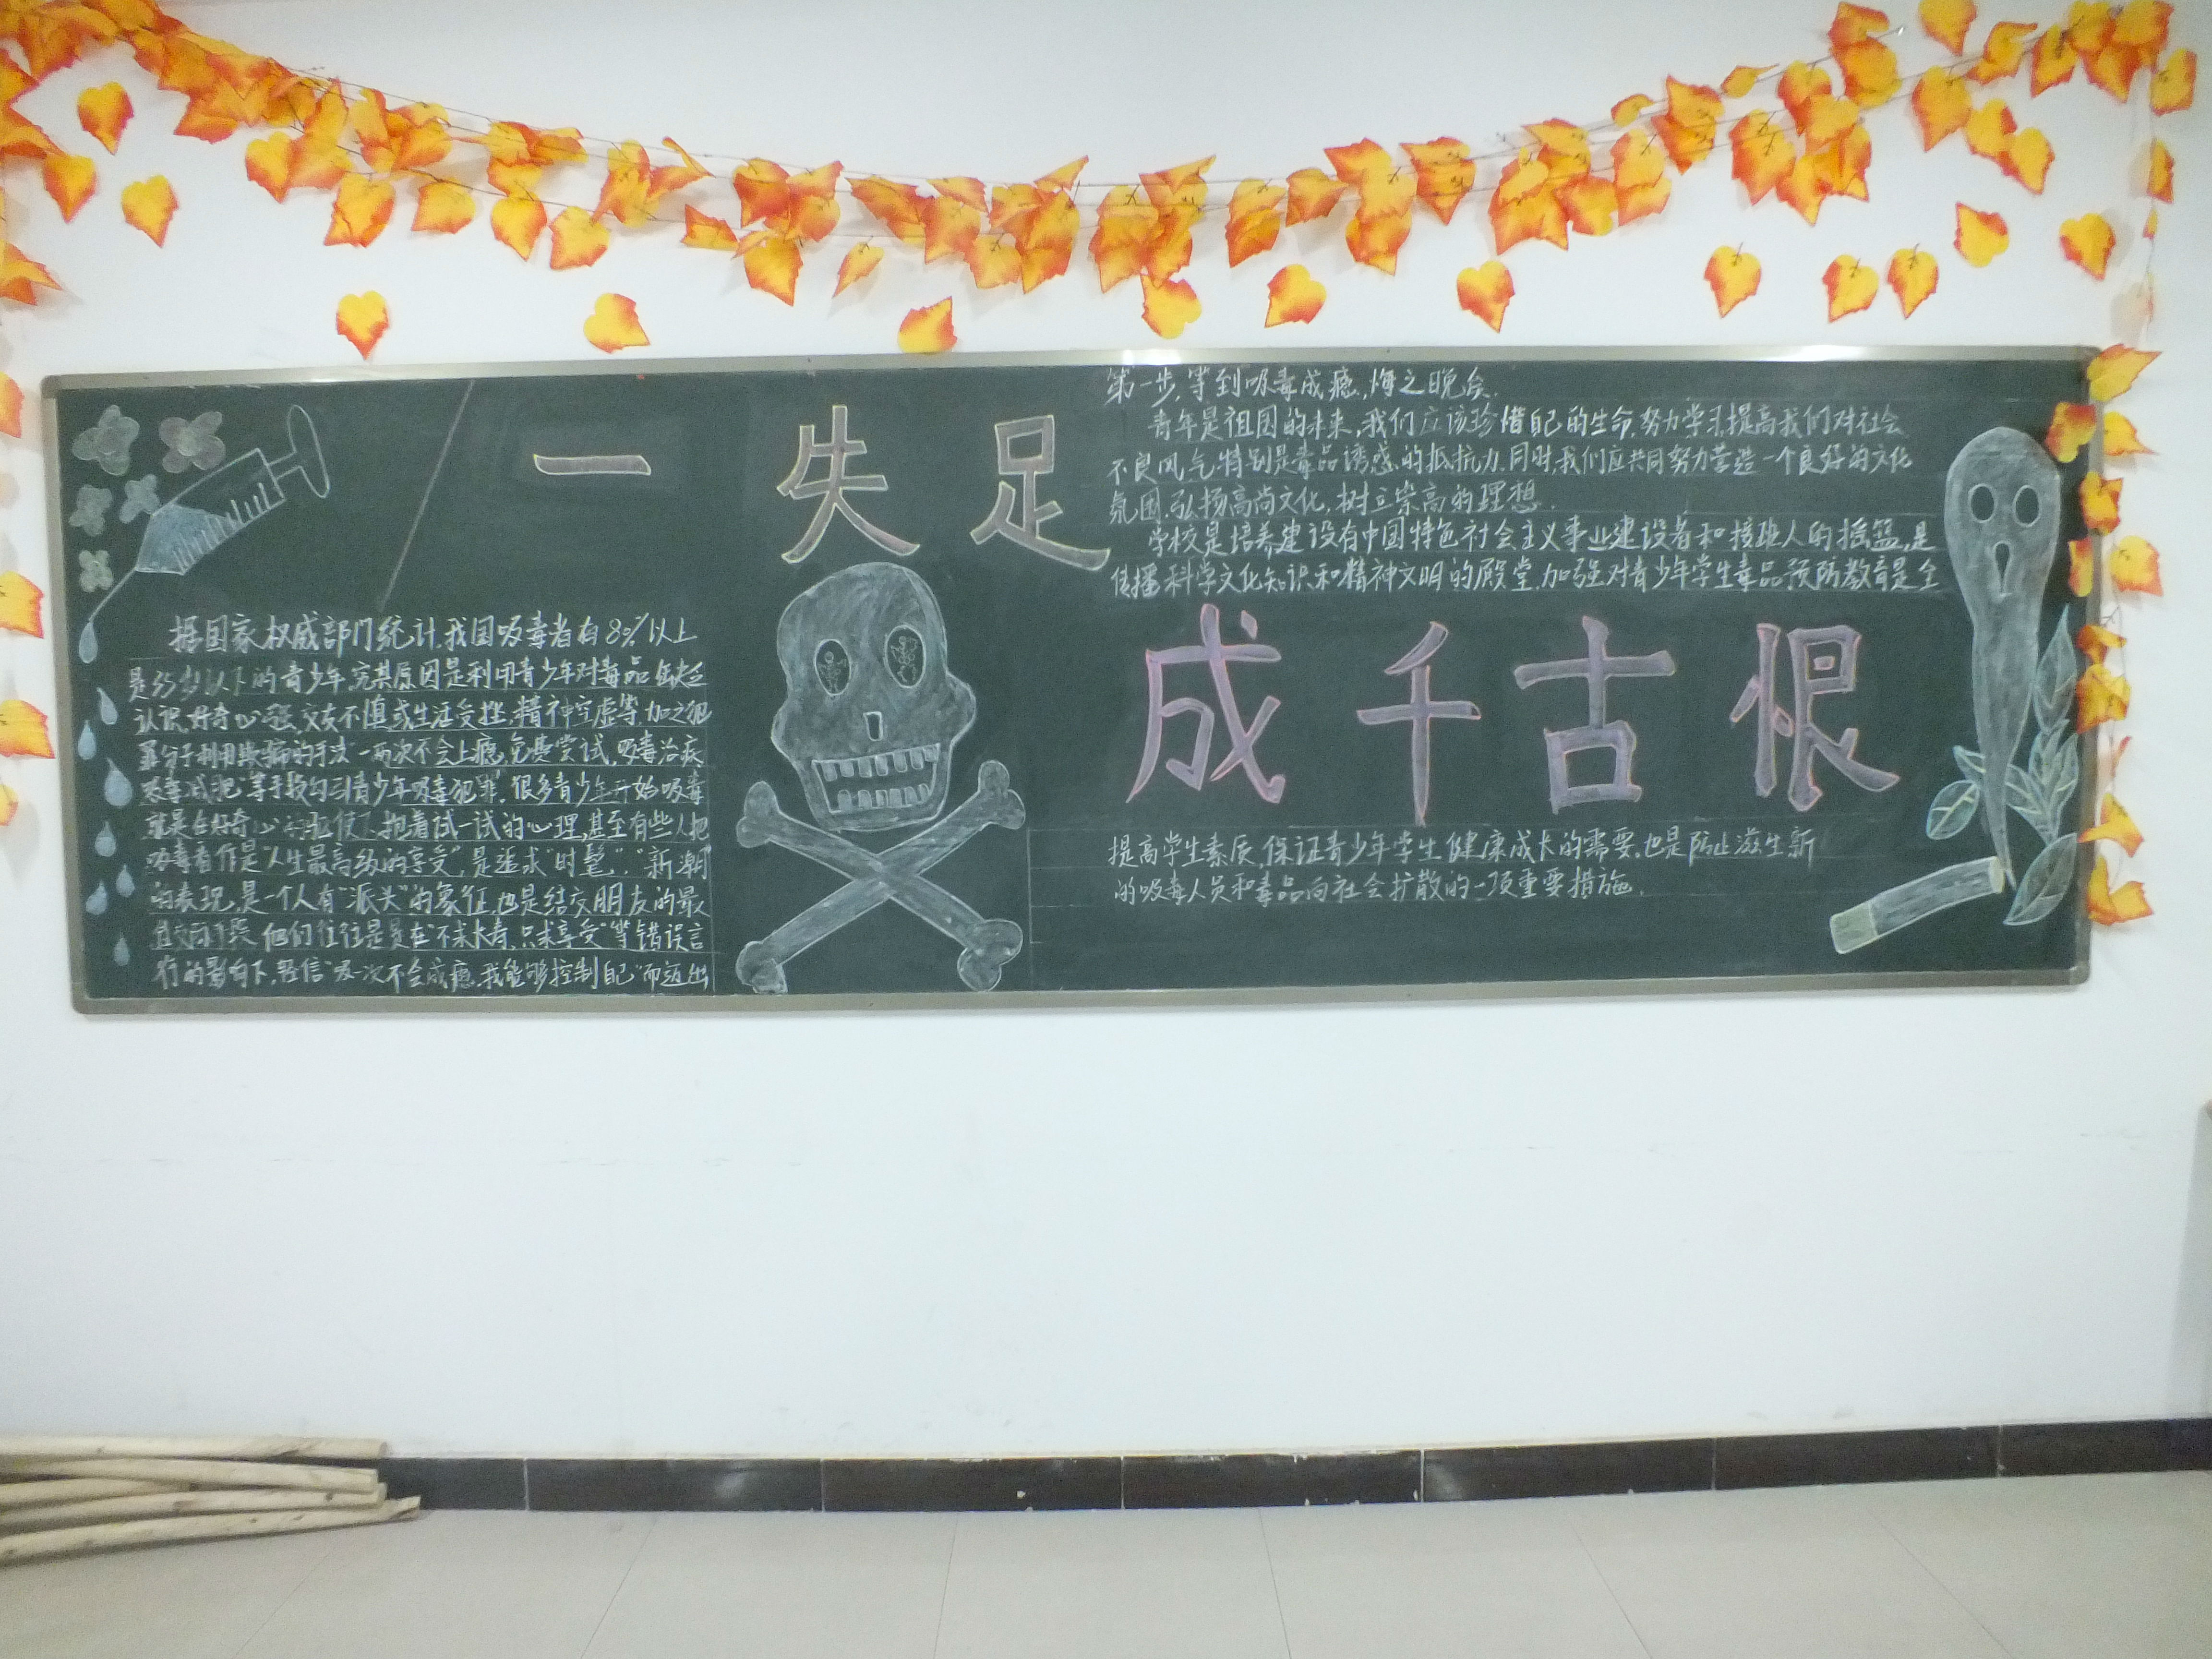 一失足
据国家权威部门统计,我国吸毒者有80%以上
是35岁以下的青少年.究其原因是利用青少年对毒品缺乏
认识,好奇心强,交友不慎或生活受挫,精神空虚等,加之犯
罪分子利用欺骗的手法"一两次不会上瘾,免费尝试,吸毒治病
吸毒减肥"等手段勾引青少年吸毒犯罪.很多青少年开始吸毒
就是在好奇心的驱使下,抱着试一试的心理,甚至有些人把
吸毒看作是"人生最高级的享受",是追求"时髦","新潮"
的表现,是一个人有"派头"的象征,也是结交朋友的最
手段.他们往往是在"不求长寿,只求享受"等错误言
行的影响下,轻信"吸一次不会成瘾,我能够控制自己"而迈出
第一步,等到吸毒成瘾,悔之晚矣.
青年是祖国的未来,我们应该珍惜自己的生命,努力学习,提高我们对社会
不良风气特别是毒品诱惑的抵抗力.同时,我们应共同努力营造一个良好的文化
氛围,弘扬高尚文化,树立崇高的理想.
学校是培养建设有中国特色社会主义事业建设者和接班人的摇篮,是
传播科学文化知识和精神文明的殿堂,加强对青少年学生毒品预防教育是全
成千古恨
提高学生素质,保证青少年学生健康成长的需要.也是防止滋生新
的吸毒人员和毒品向社会扩散的一项重要措施.